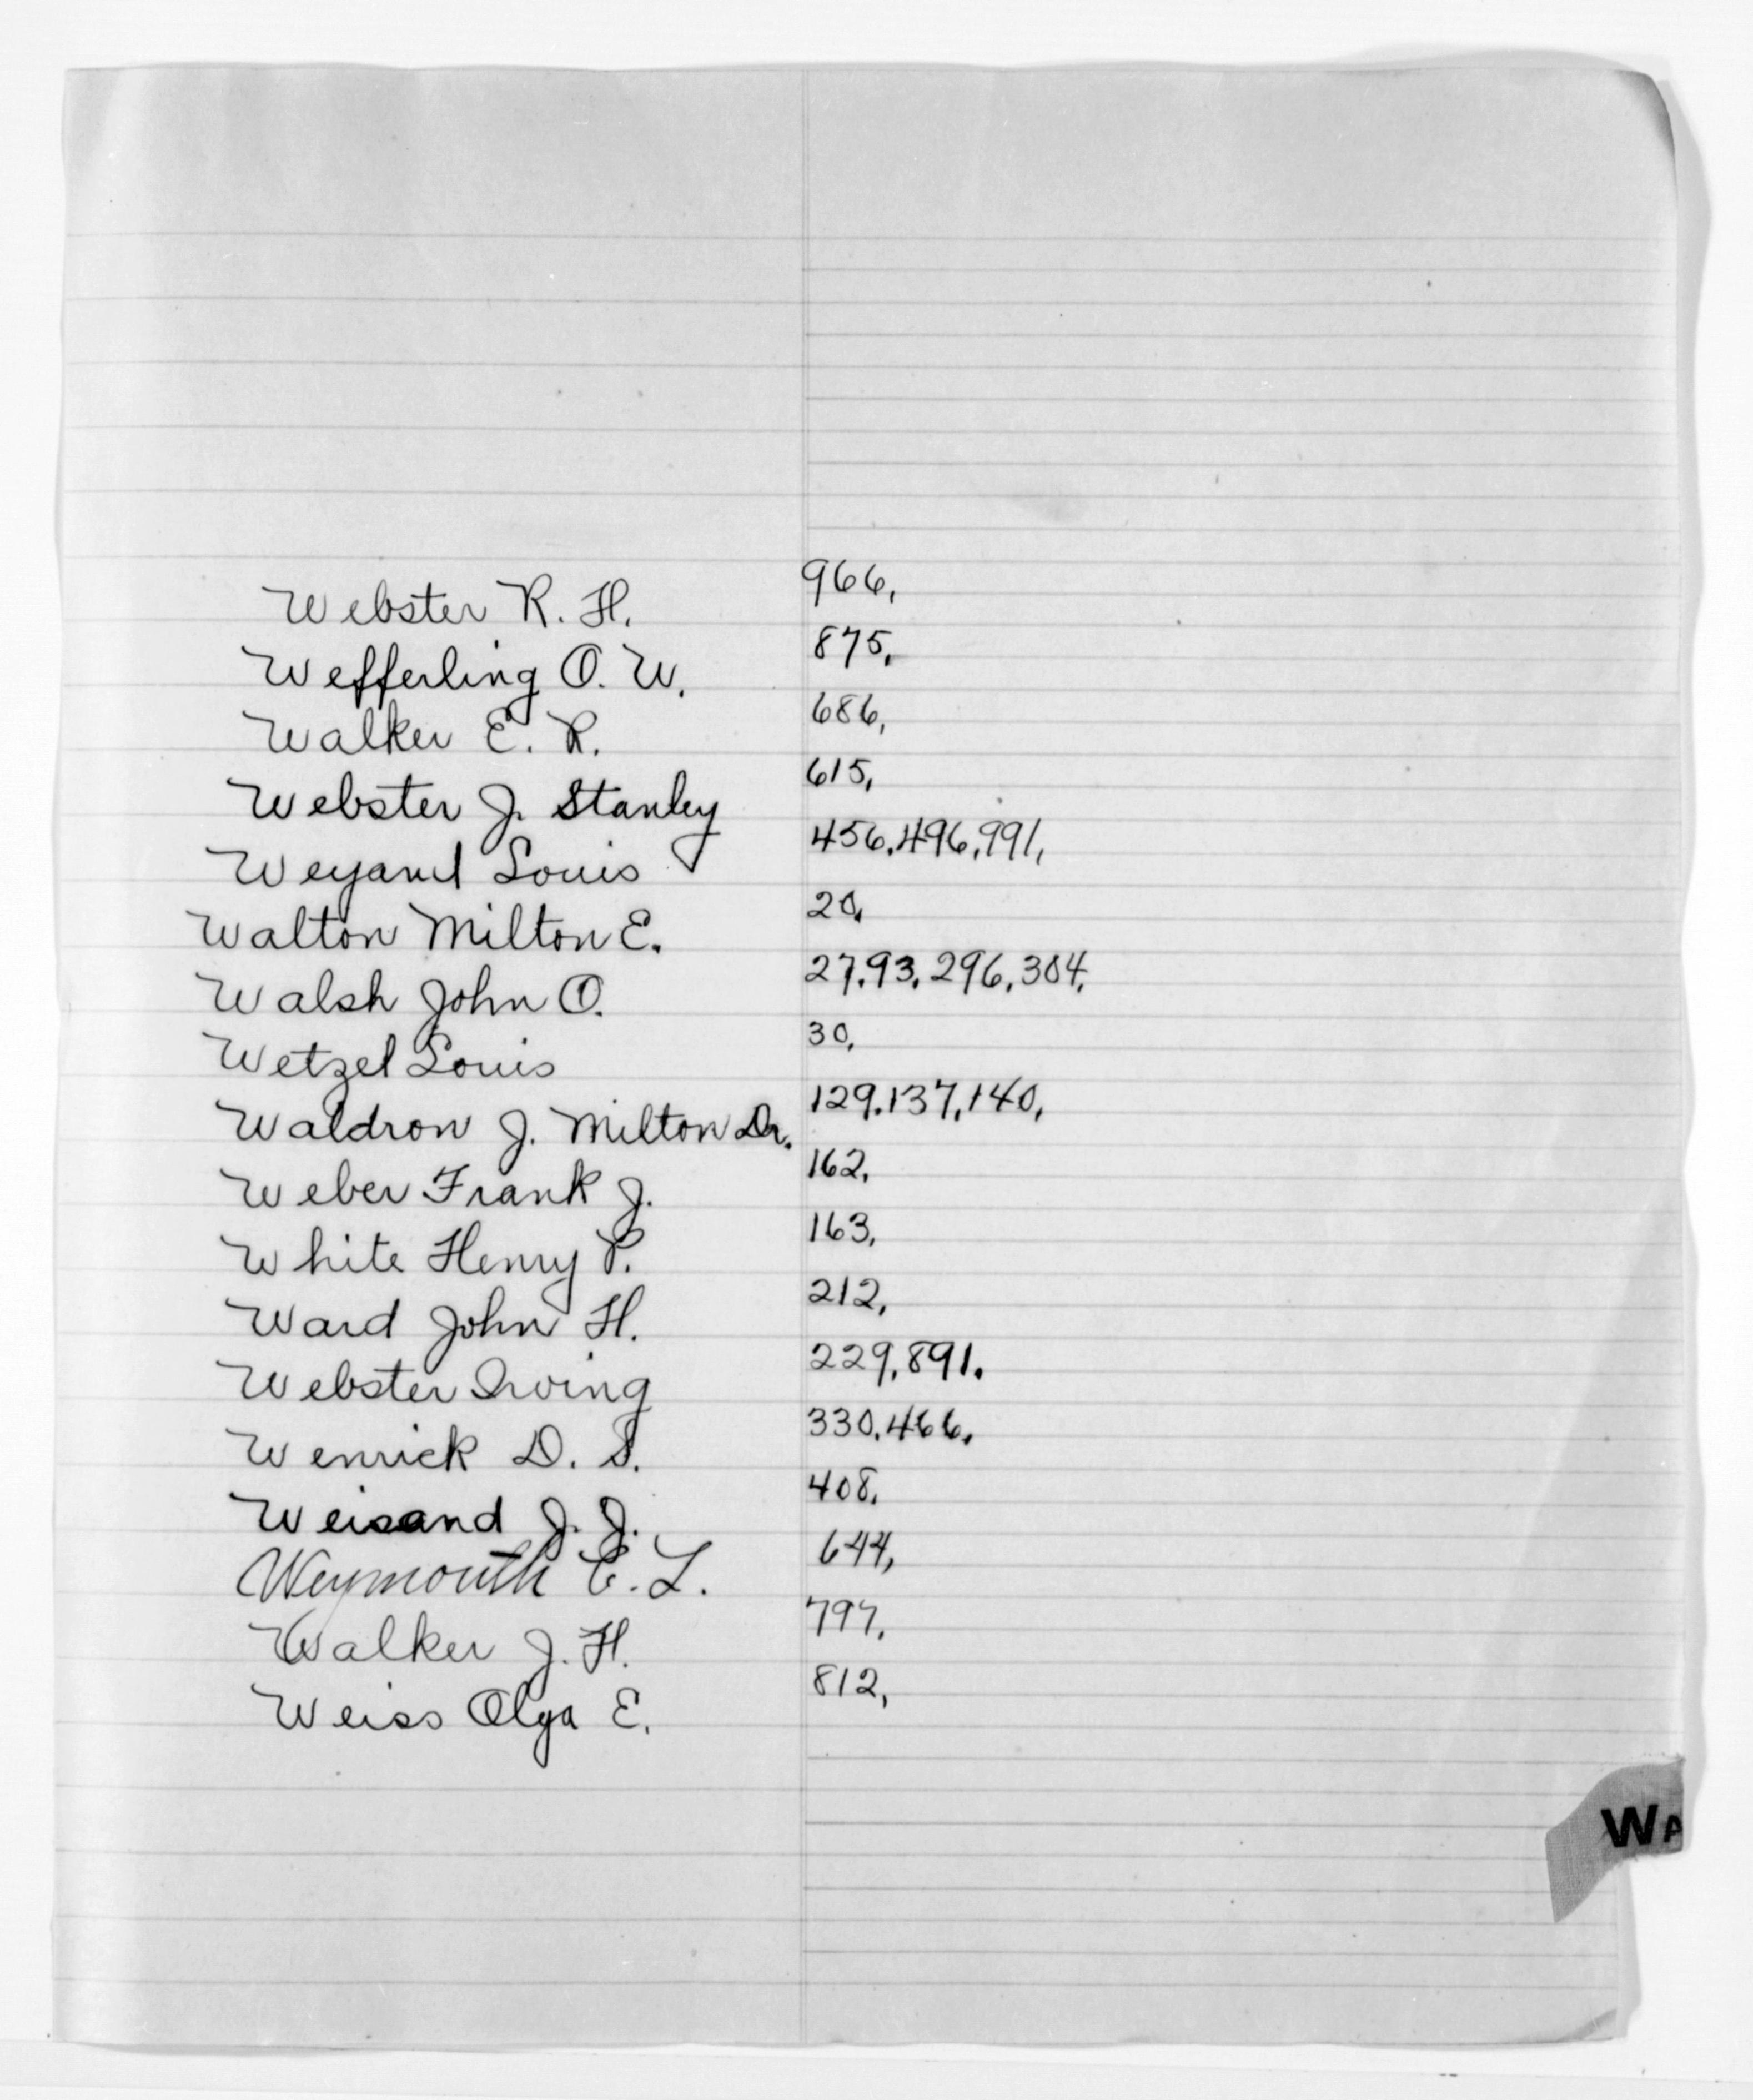 Webster R. H. 966,
Wefferling O. W. 875,
Walker E. R. 686,
Webster J. Stanley 615,
Weyand Louis 456,496,991,
Walton Milton E. 20,
Walsh John O. 27,93,296,304,
Wetzel Louis 30,
Waldron J. Milton Dr. 129,137,140,
Weber Frank J. 162,
White Henry P. 163,
Ward John H. 212,
Webster Irving 229,891.
Wenrick D. S. 330,466,
Weisand J. J. 408,
Weymouth C. L. 644,
Walker J. H. 797,
Weiss Olga E. 812,
WA